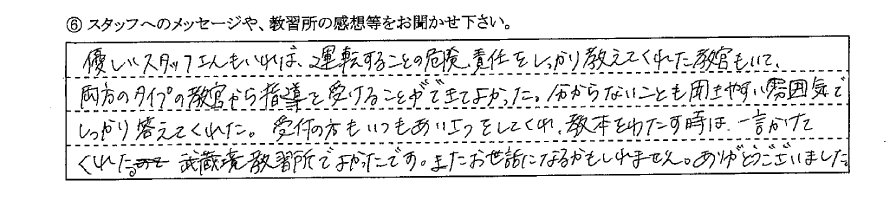 ⑥ スタッフへのメッセージや、教習所の感想等をお聞かせ下さい。
優しいスタッフさんもいれば、運転することの危険、責任をしっかり教えてくれた教官もいて、
両方のタイプの教官から指導を受けることができてよかった。分からないことも聞きやすい雰囲気で
しっかり答えてくれた。受付の方もいつもあいさつをしてくれ、教本をわたす時は、一言かけて
くれた。武蔵境教習所でよかったです。またお世話になるかもしれません。ありがとうございました。